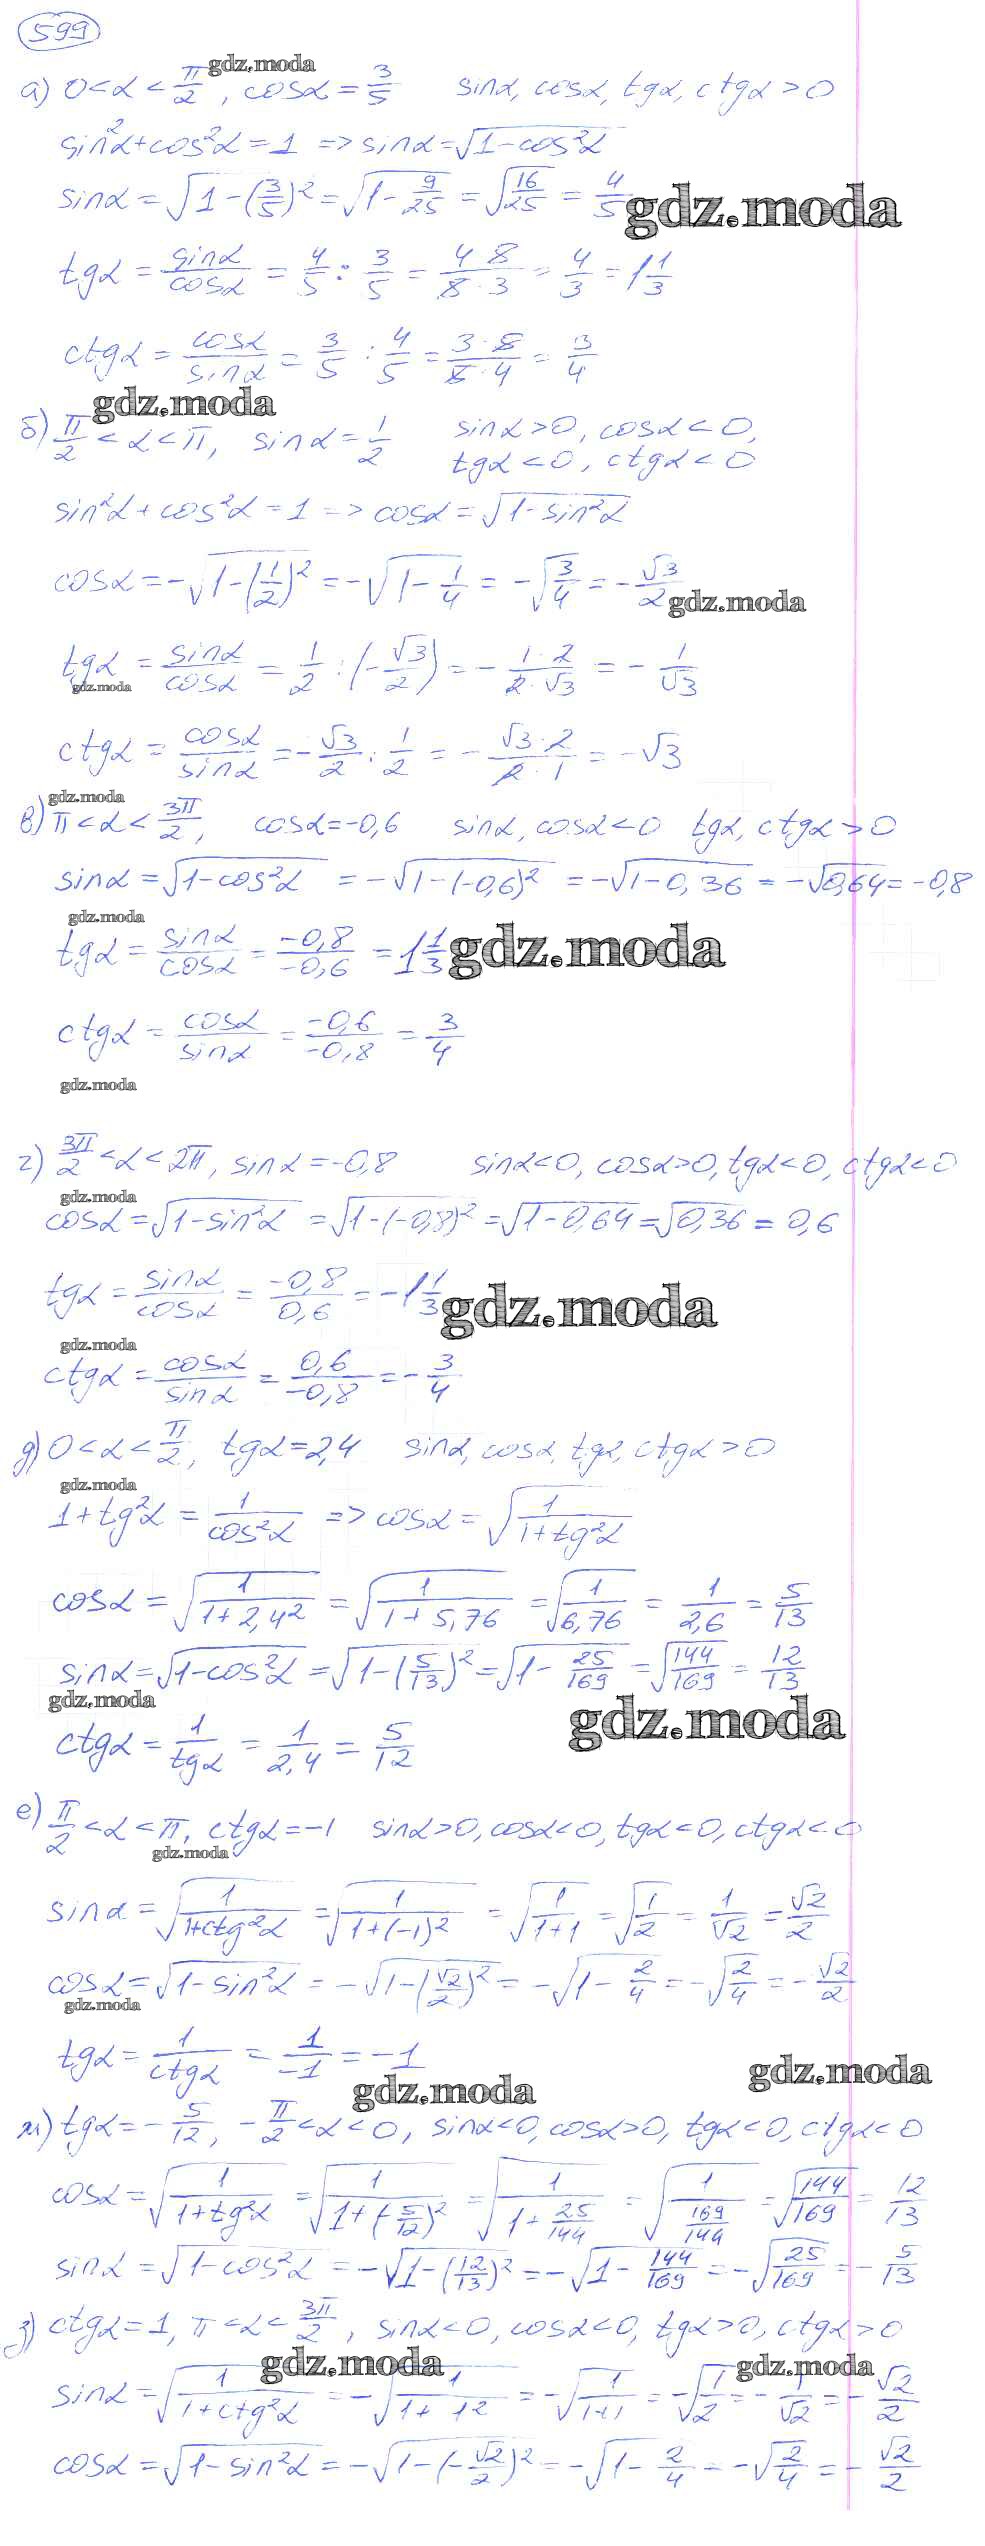 599
gdz.moda
а) 0 < α < π/2, cosα = 3/5   sinα, cosα, tgα, ctgα > 0
sin²α + cos²α = 1 => sinα = √(1 - cos²α)
sinα = √(1 - (3/5)²) = √(1 - 9/25) = √(16/25) = 4/5
gdz.moda
tgα = sinα/cosα = 4/5 : 3/5 = 4·5/5·3 = 4/3 = 1 1/3
ctgα = cosα/sinα = 3/5 : 4/5 = 3·5/5·4 = 3/4
gdz.moda
б) π/2 < α < π, sinα = 1/2   sinα > 0, cosα < 0,
tgα < 0, ctgα < 0
sin²α + cos²α = 1 => cosα = √(1 - sin²α)
cosα = -√(1 - (1/2)²) = -√(1 - 1/4) = -√(3/4) = -√3/2
gdz.moda
tgα = sinα/cosα = 1/2 : (-√3/2) = - 1·2/2·√3 = - 1/√3
gdz.moda
ctgα = cosα/sinα = -√3/2 : 1/2 = - √3·2/2·1 = -√3
gdz.moda
в) π < α < 3π/2, cosα = -0,6   sinα, cosα < 0   tgα, ctgα > 0
sinα = √(1 - cos²α) = -√(1 - (-0,6)²) = -√(1 - 0,36) = -√0,64 = -0,8
gdz.moda
tgα = sinα/cosα = -0,8/-0,6 = 1 1/3
gdz.moda
ctgα = cosα/sinα = -0,6/-0,8 = 3/4
gdz.moda
г) 3π/2 < α < 2π, sinα = -0,8   sinα < 0, cosα > 0, tgα < 0, ctgα < 0
gdz.moda
cosα = √(1 - sin²α) = √(1 - (-0,8)²) = √(1 - 0,64) = √0,36 = 0,6
tgα = sinα/cosα = -0,8/0,6 = -1 1/3
gdz.moda
gdz.moda
ctgα = cosα/sinα = 0,6/-0,8 = - 3/4
д) 0 < α < π/2, tgα = 2,4   sinα, cosα, tgα, ctgα > 0
gdz.moda
1 + tg²α = 1/cos²α => cosα = √(1/(1 + tg²α))
cosα = √(1/(1 + 2,4²)) = √(1/(1 + 5,76)) = √(1/6,76) = 1/2,6 = 5/13
sinα = √(1 - cos²α) = √(1 - (5/13)²) = √(1 - 25/169) = √(144/169) = 12/13
gdz.moda
gdz.moda
ctgα = 1/tgα = 1/2,4 = 5/12
е) π/2 < α < π, ctgα = -1   sinα > 0, cosα < 0, tgα < 0, ctgα < 0
gdz.moda
sinα = √(1/(1 + ctg²α)) = √(1/(1 + (-1)²)) = √(1/(1 + 1)) = √(1/2) = 1/√2 = √2/2
cosα = √(1 - sin²α) = -√(1 - (√2/2)²) = -√(1 - 2/4) = -√(2/4) = -√2/2
gdz.moda
tgα = 1/ctgα = 1/-1 = -1
gdz.moda
gdz.moda
ж) tgα = - 5/12, - π/2 < α < 0, sinα < 0, cosα > 0, tgα < 0, ctgα < 0
cosα = √(1/(1 + tg²α)) = √(1/(1 + (-5/12)²)) = √(1/(1 + 25/144)) = √(1/(169/144)) = √(144/169) = 12/13
sinα = √(1 - cos²α) = -√(1 - (12/13)²) = -√(1 - 144/169) = -√(25/169) = - 5/13
з) ctgα = 1, π < α < 3π/2, sinα < 0, cosα < 0, tgα > 0, ctgα > 0
gdz.moda
gdz.moda
sinα = √(1/(1 + ctg²α)) = -√(1/(1 + 1²)) = -√(1/(1+1)) = -√(1/2) = - 1/√2 = - √2/2
cosα = √(1 - sin²α) = -√(1 - (-√2/2)²) = -√(1 - 2/4) = -√(2/4) = - √2/2